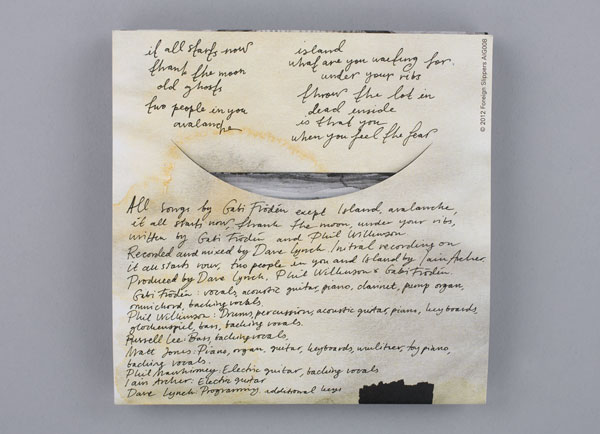 it all starts now
thank the moon
old ghosts
two people in you
avalanche
island
what are you waiting for
under your ribs
throw the lot in
dead inside
is that you
when you feel the fear
© 2012 Foreign Slippers AIG008
All songs by Gabi Frödén exept Island, avalanche,
it all starts now, thank the moon, under your ribs,
written by Gabi Frödén and Phil Wilkinson
Recorded and mixed by Dave Lynch. Initial recording on
it all starts now, two people in you and Island by Iain Archer.
Produced by Dave Lynch, Phil Wilkinson & Gabi Frödén.
Gabi Frödén: vocals, acoustic guitar, piano, clarinet, pump organ,
omnichord, backing vocals.
Phil Wilkinson: Drums, percussion, acoustic guitar, piano, keyboards,
glockenspiel, bass, backing vocals.
Russell Lee: Bass, backing vocals,
Matt Jones: Piano, organ, guitar, keyboards, wurlitzer, toy piano,
backing vocals.
Phil: Electric guitar, backing vocals
Iain Archer: Electric guitar
Dave Lynch: Programming, additional keys